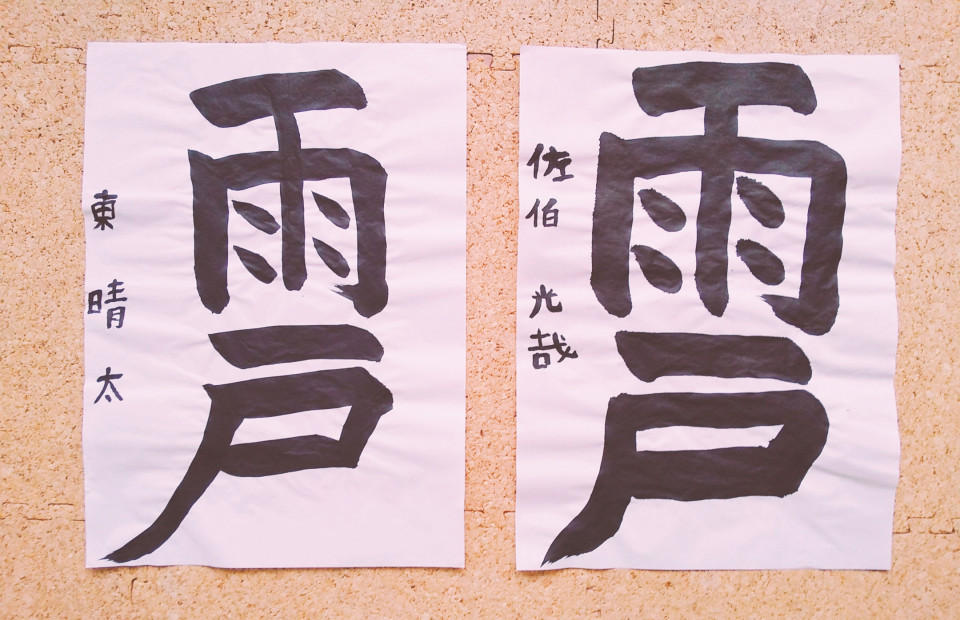 雨戸
東 晴太
雨戸
佐伯 光哉